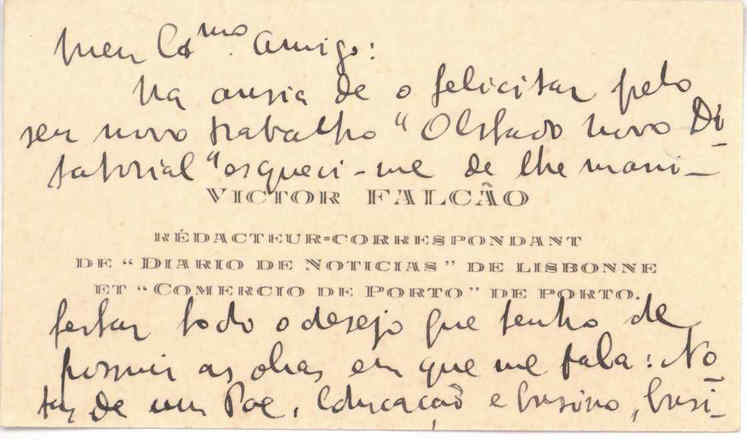 Meu Cd.mo Amigo:
Na ansia de o felicitar pelo
seu novo trabalho "O Estado novo Di-
tatorial" esqueci-me de lhe mani-
VICTOR FALCÃO
RÉDACTEUR-CORRESPONDANT
DE "DIARIO DE NOTICIAS" DE LISBONNE
ET "COMERCIO DE PORTO" DE PORTO.
festar todo o desejo que tenho de
possuir as obras em que me fala: No-
tas de um Pae, Educação e Ensino, Ensi-